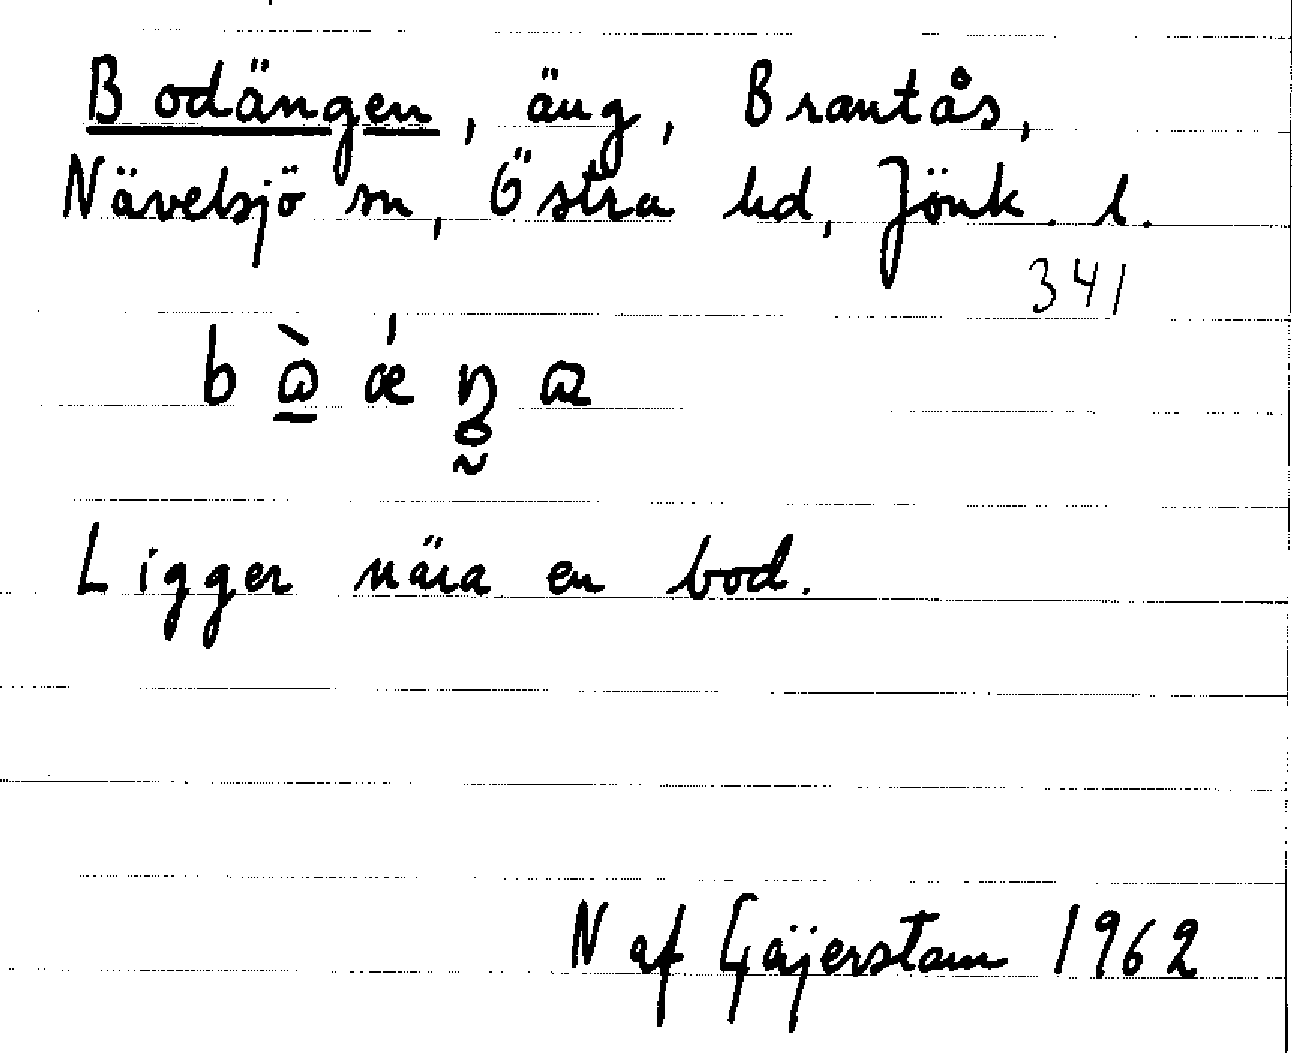 Bodängen, äng, Brantås,
Nävelsjö sn, Östra hd, Jönk. l.
341
Ligger nära en bod.
N af Gäijerstam 1962